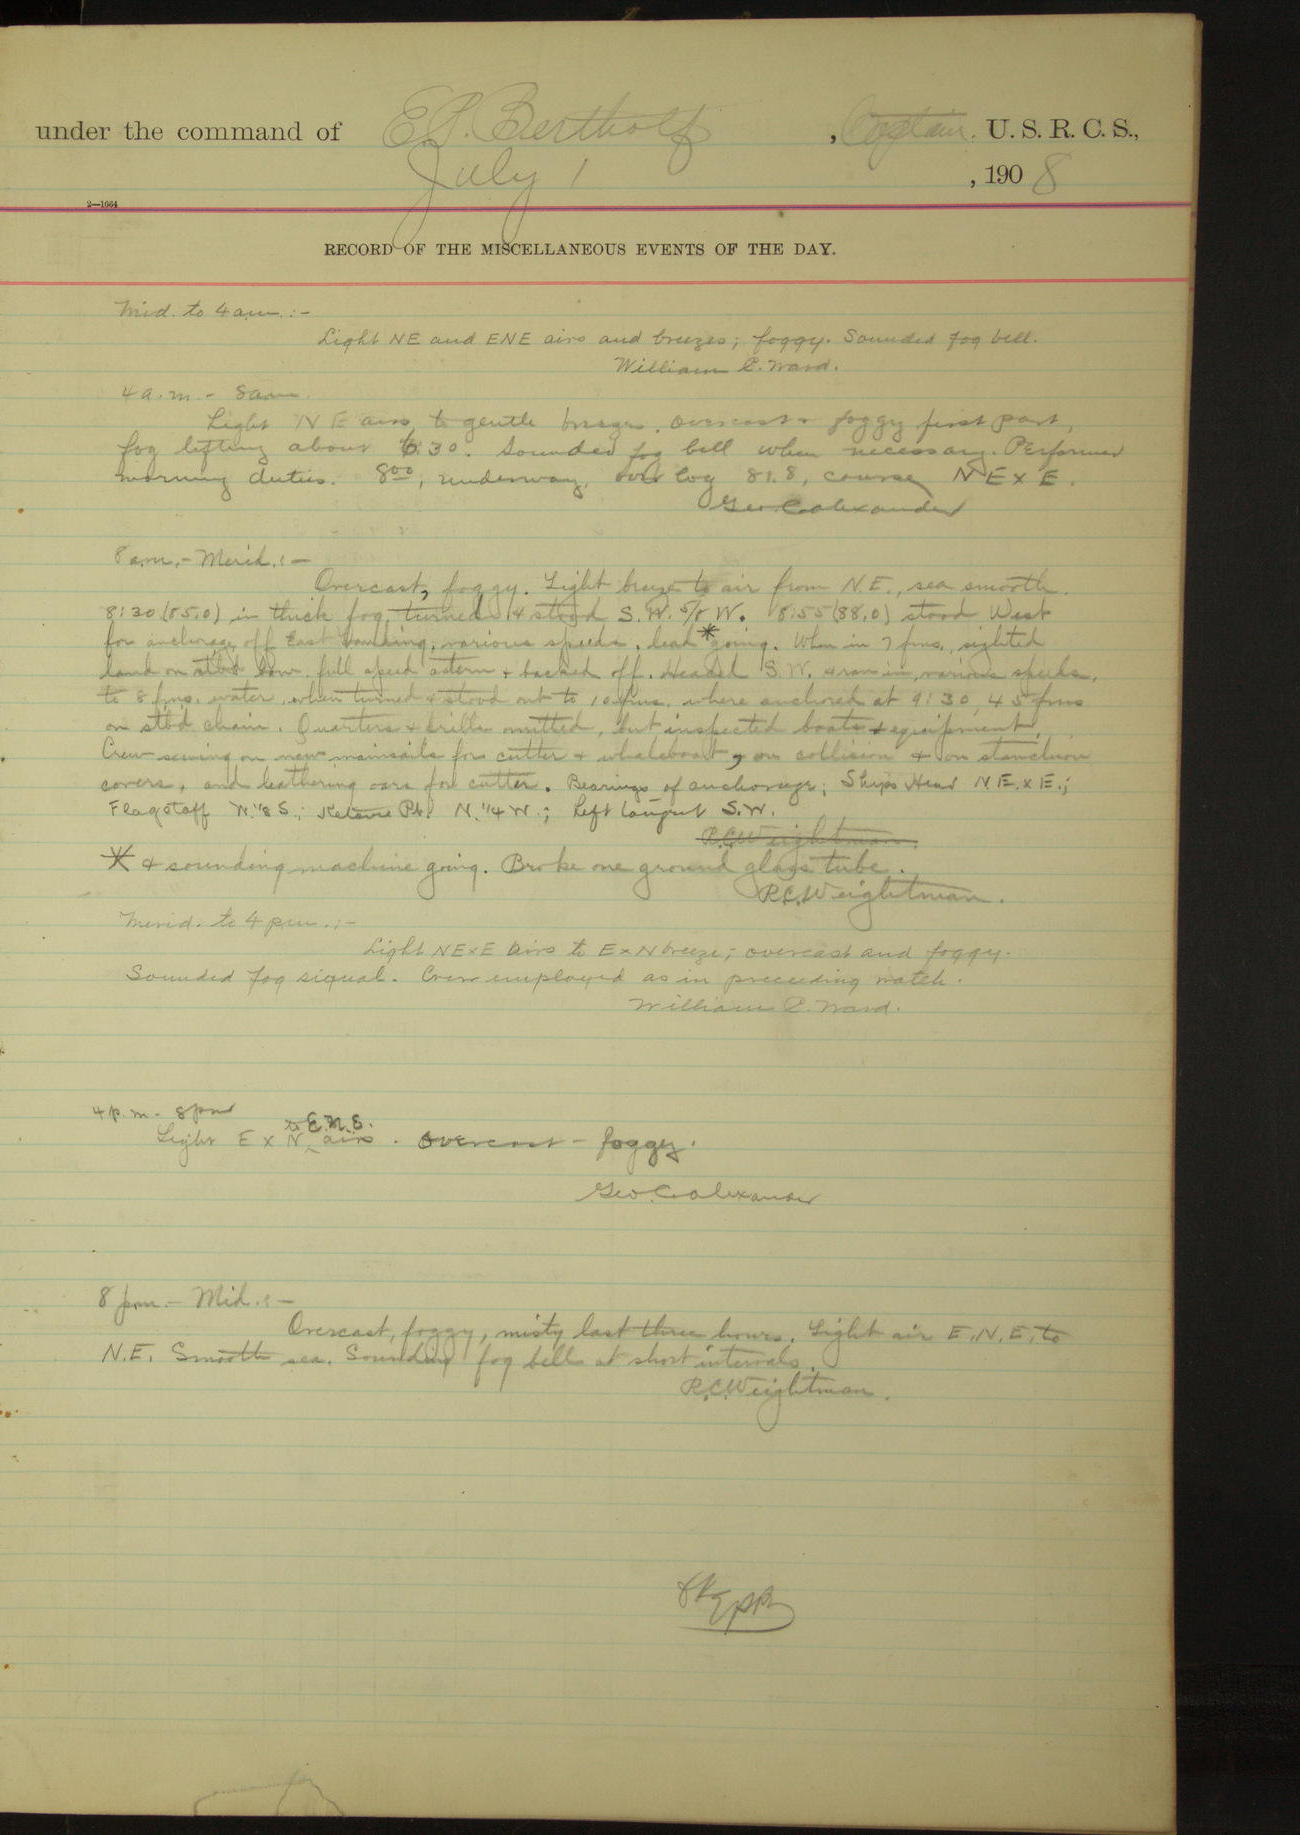 under the command of E.P. Bertholf, Captain. U. S. R. C. S.,
July 1, 1908
2—1664
RECORD OF THE MISCELLANEOUS EVENTS OF THE DAY.
Mid. to 4 a.m.:-
Light NE and ENE airs and breezes; foggy. Sounded fog bell.
William P. Ward.
4 a.m. - 8 am.
Light N E airs to gentle breeze. Overcast + foggy first part,
fog lifting about 6:30. Sounded fog bell when necessary. Performed
morning duties. 8⁰⁰, underway, over log 81.8, course N E x E.
Geo. C. Alexander
8 a.m. - Merid.:-
Overcast, foggy. Light breeze to air from N.E., sea smooth.
8:30 (85.0) in thick fog, turned + stood S.W. 5/8 W. 8:55 (88.0) stood West
for anchorage off East Landing, various speeds, lead * going. When in 7 fms, sighted
land on stbd bow, full speed astern + backed off. Headed S.W. + ran in, various speeds,
to 8 fms. water, when turned + stood out to 10 fms. where anchored at 9:30, 45 fms
on stbd chain. Quarters + drills omitted, but inspected boats + equipment.
Crew sewing on new mainsails for cutter + whaleboat, on collision + on stanchion
covers, and leathering oars for cutter. Bearings of anchorage; Ships Head N.E. x E.;
Flagstaff W. 1/8 S.; Pt. N. 1/4 W.; Left tangent S.W.
R.C. Weightman.
* + sounding machine going. Broke one ground glass tube.
R.C. Weightman.
Merid. to 4 p.m.:-
Light NE x E airs to E x N breeze; overcast and foggy.
Sounded fog signal. Crew employed as in preceeding watch.
William P. Ward.
4 p.m. - 8 pm
Light E x N to E.N.E. airs. Overcast - foggy.
Geo. C. Alexander
8 p.m. - Mid.:-
Overcast, foggy, misty last three hours. Light air E.N.E. to
N.E. Smooth sea. Sounding fog bell at short intervals.
R.C. Weightman.